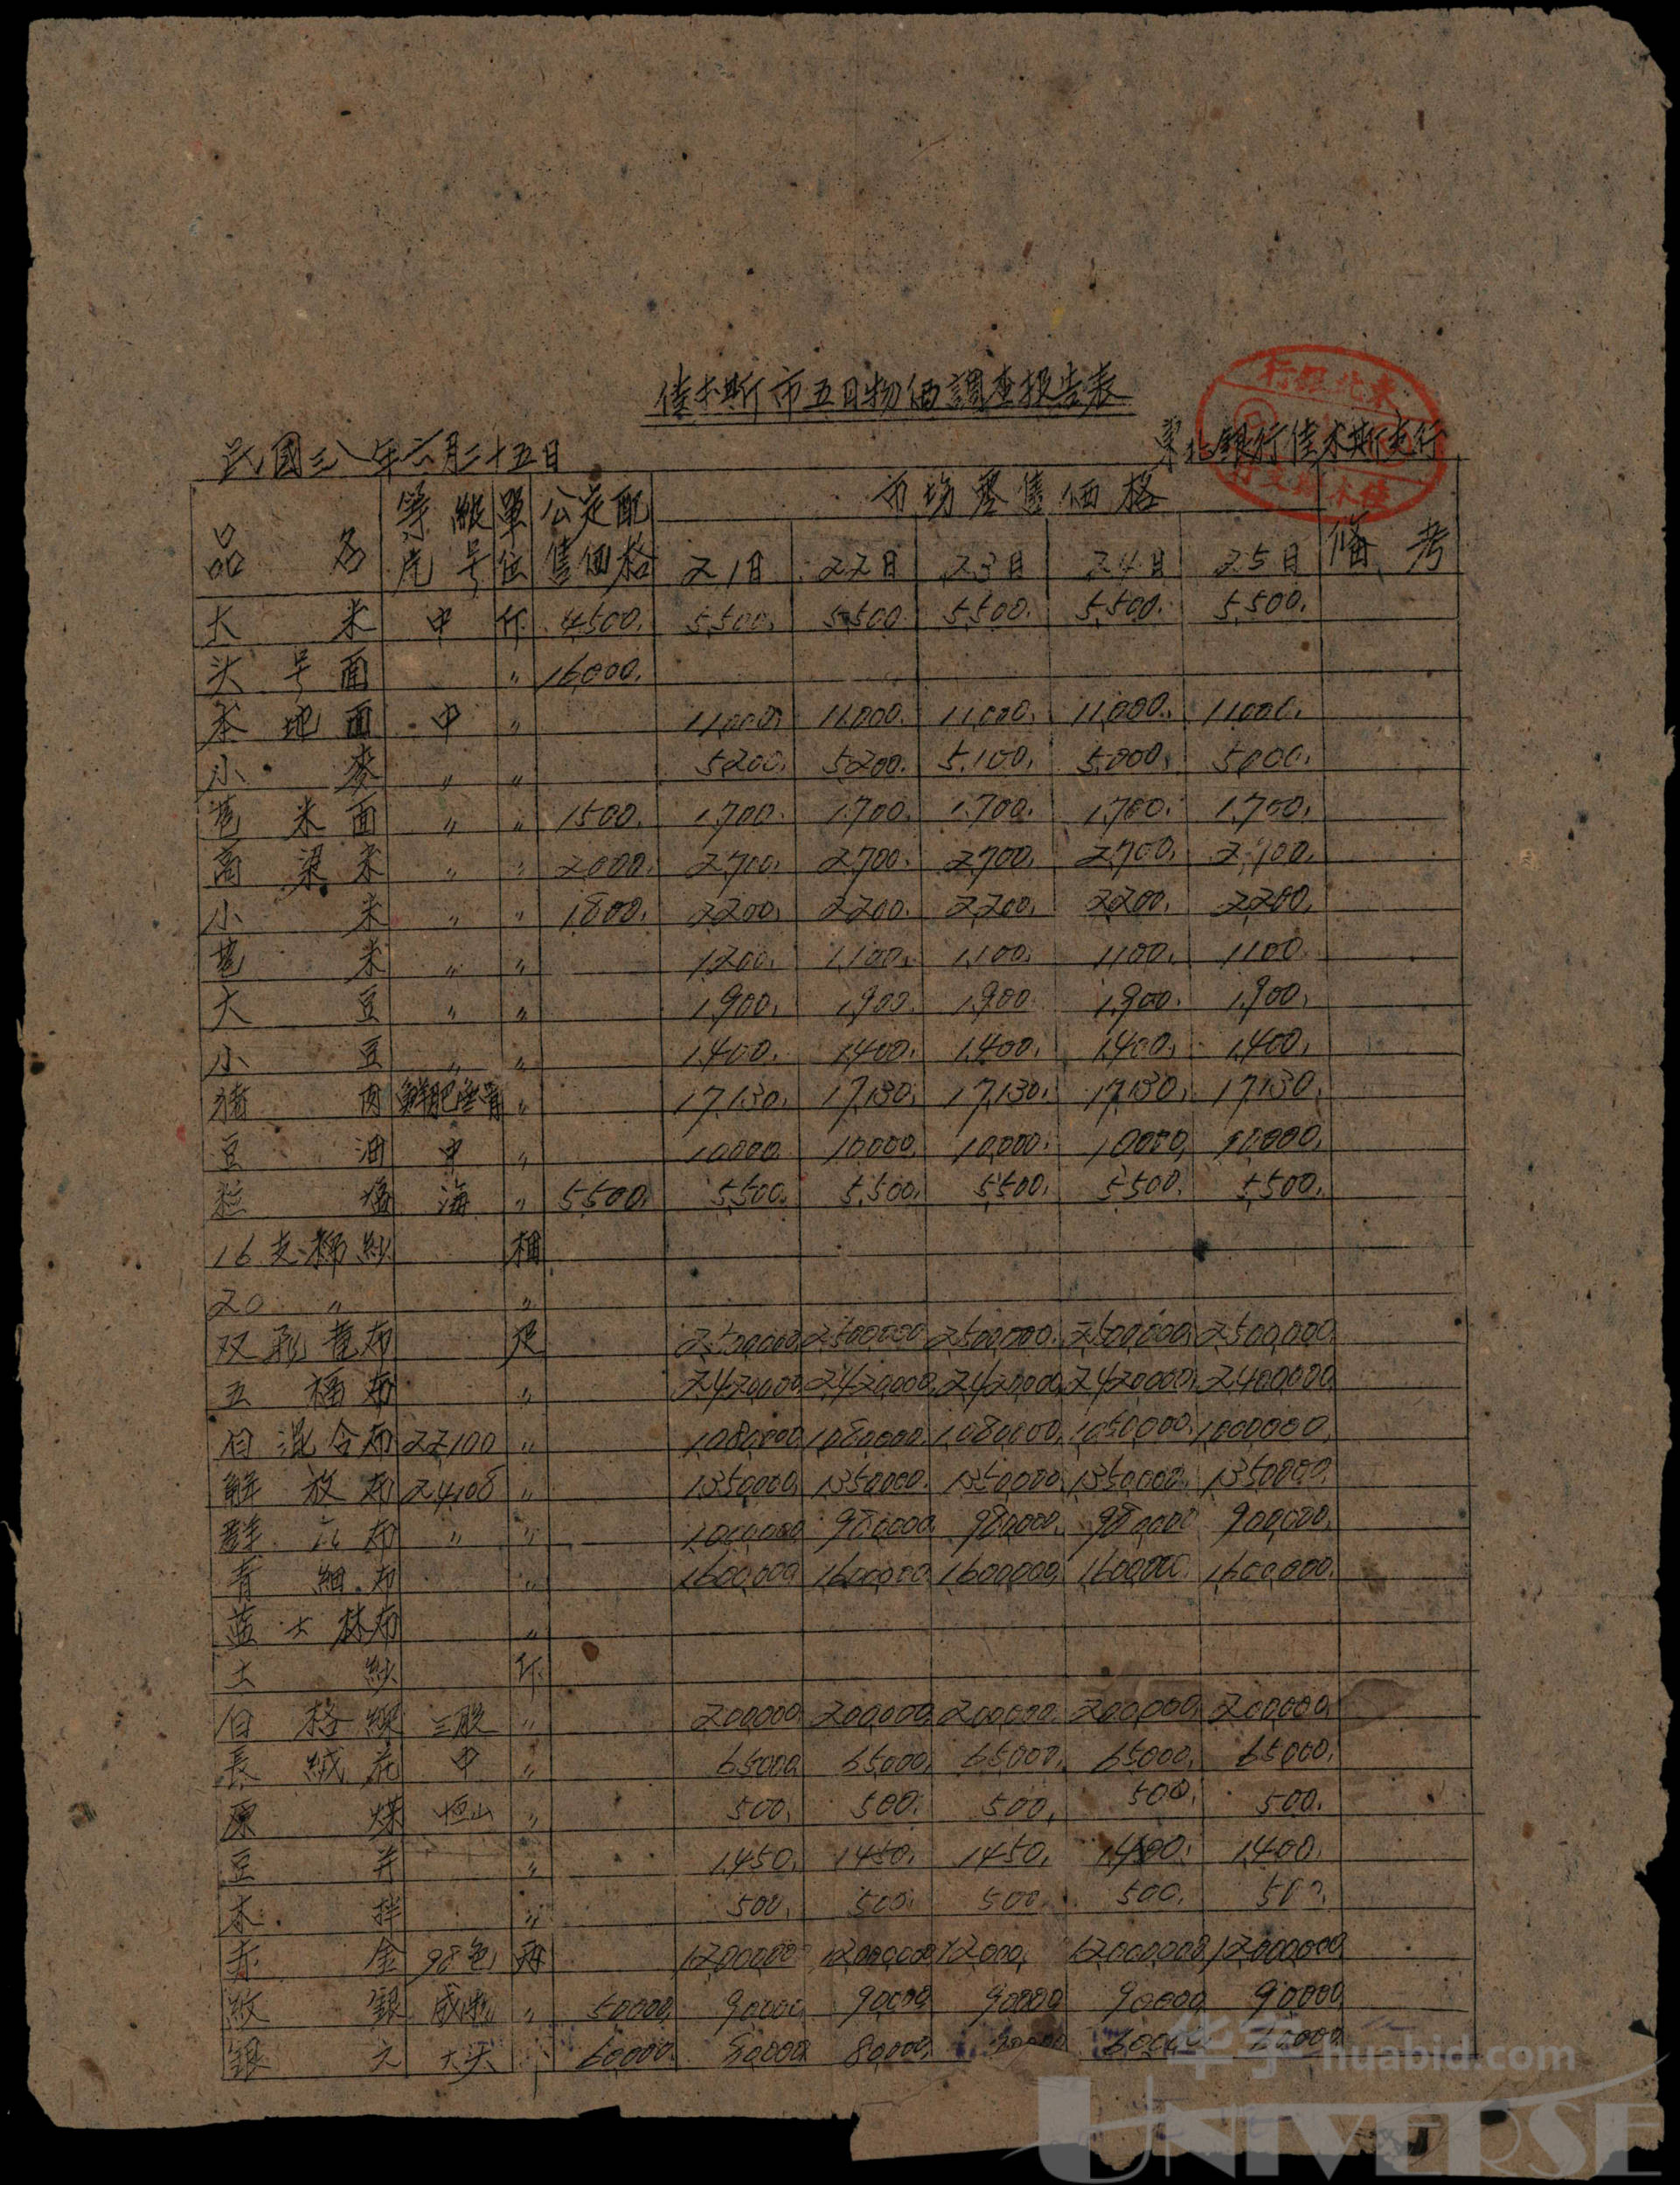 佳木斯市五日物価調查报告表
東北銀行
佳木斯支行
民國三八年六月二十五日
東北銀行佳木斯支行
品名 等級牌号 單位 公定配售価格 市場零售価格 備考
21日 22日 23日 24日 25日
大米 中 斤 4500. 5,500. 5,500. 5,500. 5,500. 5,500.
头号面 〃 16,000.
本地面 中 〃 11,000. 11,000. 11,000. 11,000. 11,000.
小麥 〃 〃 5200. 5200. 5,100. 5,000. 5,000.
苞米面 〃 〃 1500. 1,700. 1,700. 1,700. 1,700. 1,700.
高粱米 〃 〃 2000. 2,700. 2,700. 2,700. 2,700. 2,700.
小米 〃 〃 1,800. 2,200. 2,200. 2,200. 2,200. 2,200.
苞米 〃 〃 1,200. 1,100. 1,100. 1,100. 1,100.
大豆 〃 〃 1,900. 1,900. 1,900. 1,900. 1,900.
小豆 〃 〃 1,400. 1,400. 1,400. 1,400. 1,400.
猪肉 鮮肥 〃 17,130. 17,130. 17,130. 17,130. 17,130.
豆油 中 〃 10,000. 10,000. 10,000. 10,000. 10,000.
粒塩 海 〃 5,500. 5,500. 5,500. 5,500. 5,500. 5,500.
16支棉紗 梱
20 〃 〃
双龍布 疋 2,500,000. 2,500,000. 2,500,000. 2,500,000. 2,500,000.
五福布 〃 2,420,000. 2,420,000. 2,420,000. 2,420,000. 2,400,000.
白混合布 22,100 〃 1,080,000. 1,080,000. 1,080,000. 1,050,000. 1,000,000.
解放布 24,108 〃 1,350,000. 1,350,000. 1,350,000. 1,350,000. 1,350,000.
布 〃 〃 1,000,000. 980,000. 980,000. 980,000. 900,000.
青細布 〃 1,600,000. 1,600,000. 1,600,000. 1,600,000. 1,600,000.
藍士林布 〃
土紗 斤
白格線 三股 〃 200,000. 200,000. 200,000. 200,000. 200,000.
長絨花 中 〃 65,000. 65,000. 65,000. 65,000. 65,000.
原煤 恒山 〃 500. 500. 500. 500. 500.
豆并 〃 1,450. 1,450. 1,450. 1,400. 1,400.
木拌 〃 500. 500. 500. 500. 500.
赤金 98色 两 12,000,000 12,000,000 12,000, 12,000,000 12,000,000
紋銀 〃 50,000. 90,000. 90,000. 90,000. 90,000. 90,000.
銀元 大 60,000. 80,000.
华宇 huabid.com
UNIVERSE